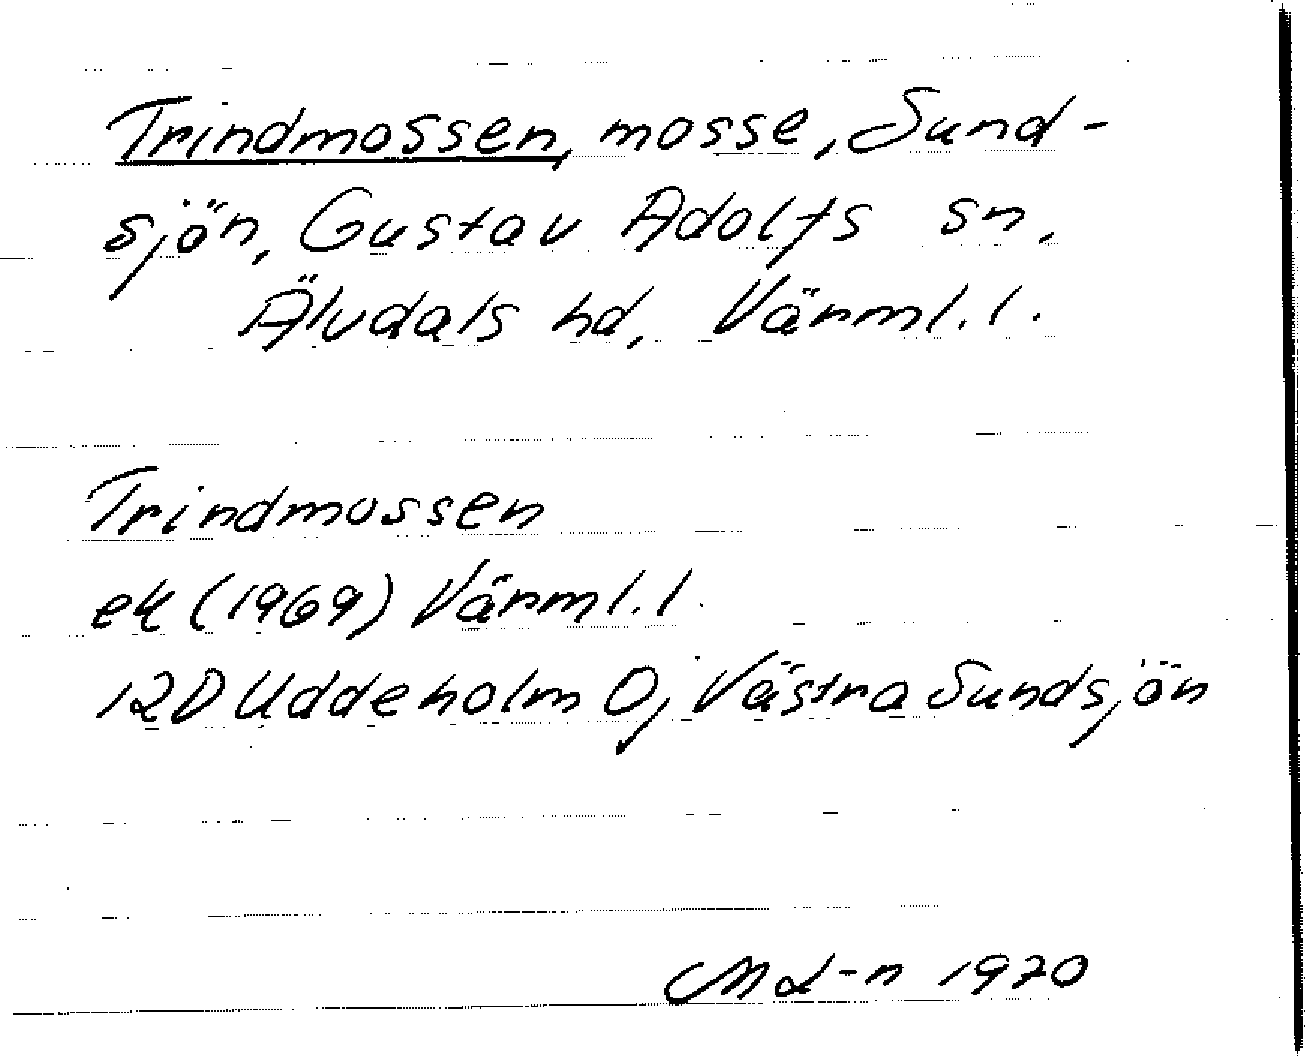 Trindmossen, mosse, Sund-
sjön, Gustav Adolfs sn,
Älvdals hd, Värml. l.
Trindmossen
ek (1969) Värml. l.
12D Uddeholm 0j Västra Sundsjön
ML-n 1970